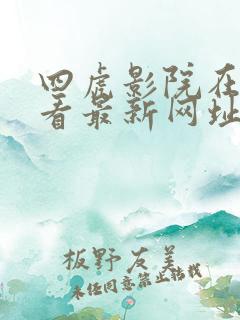 四虎影院在
看最新网址
板野友美
未经同意禁止转载